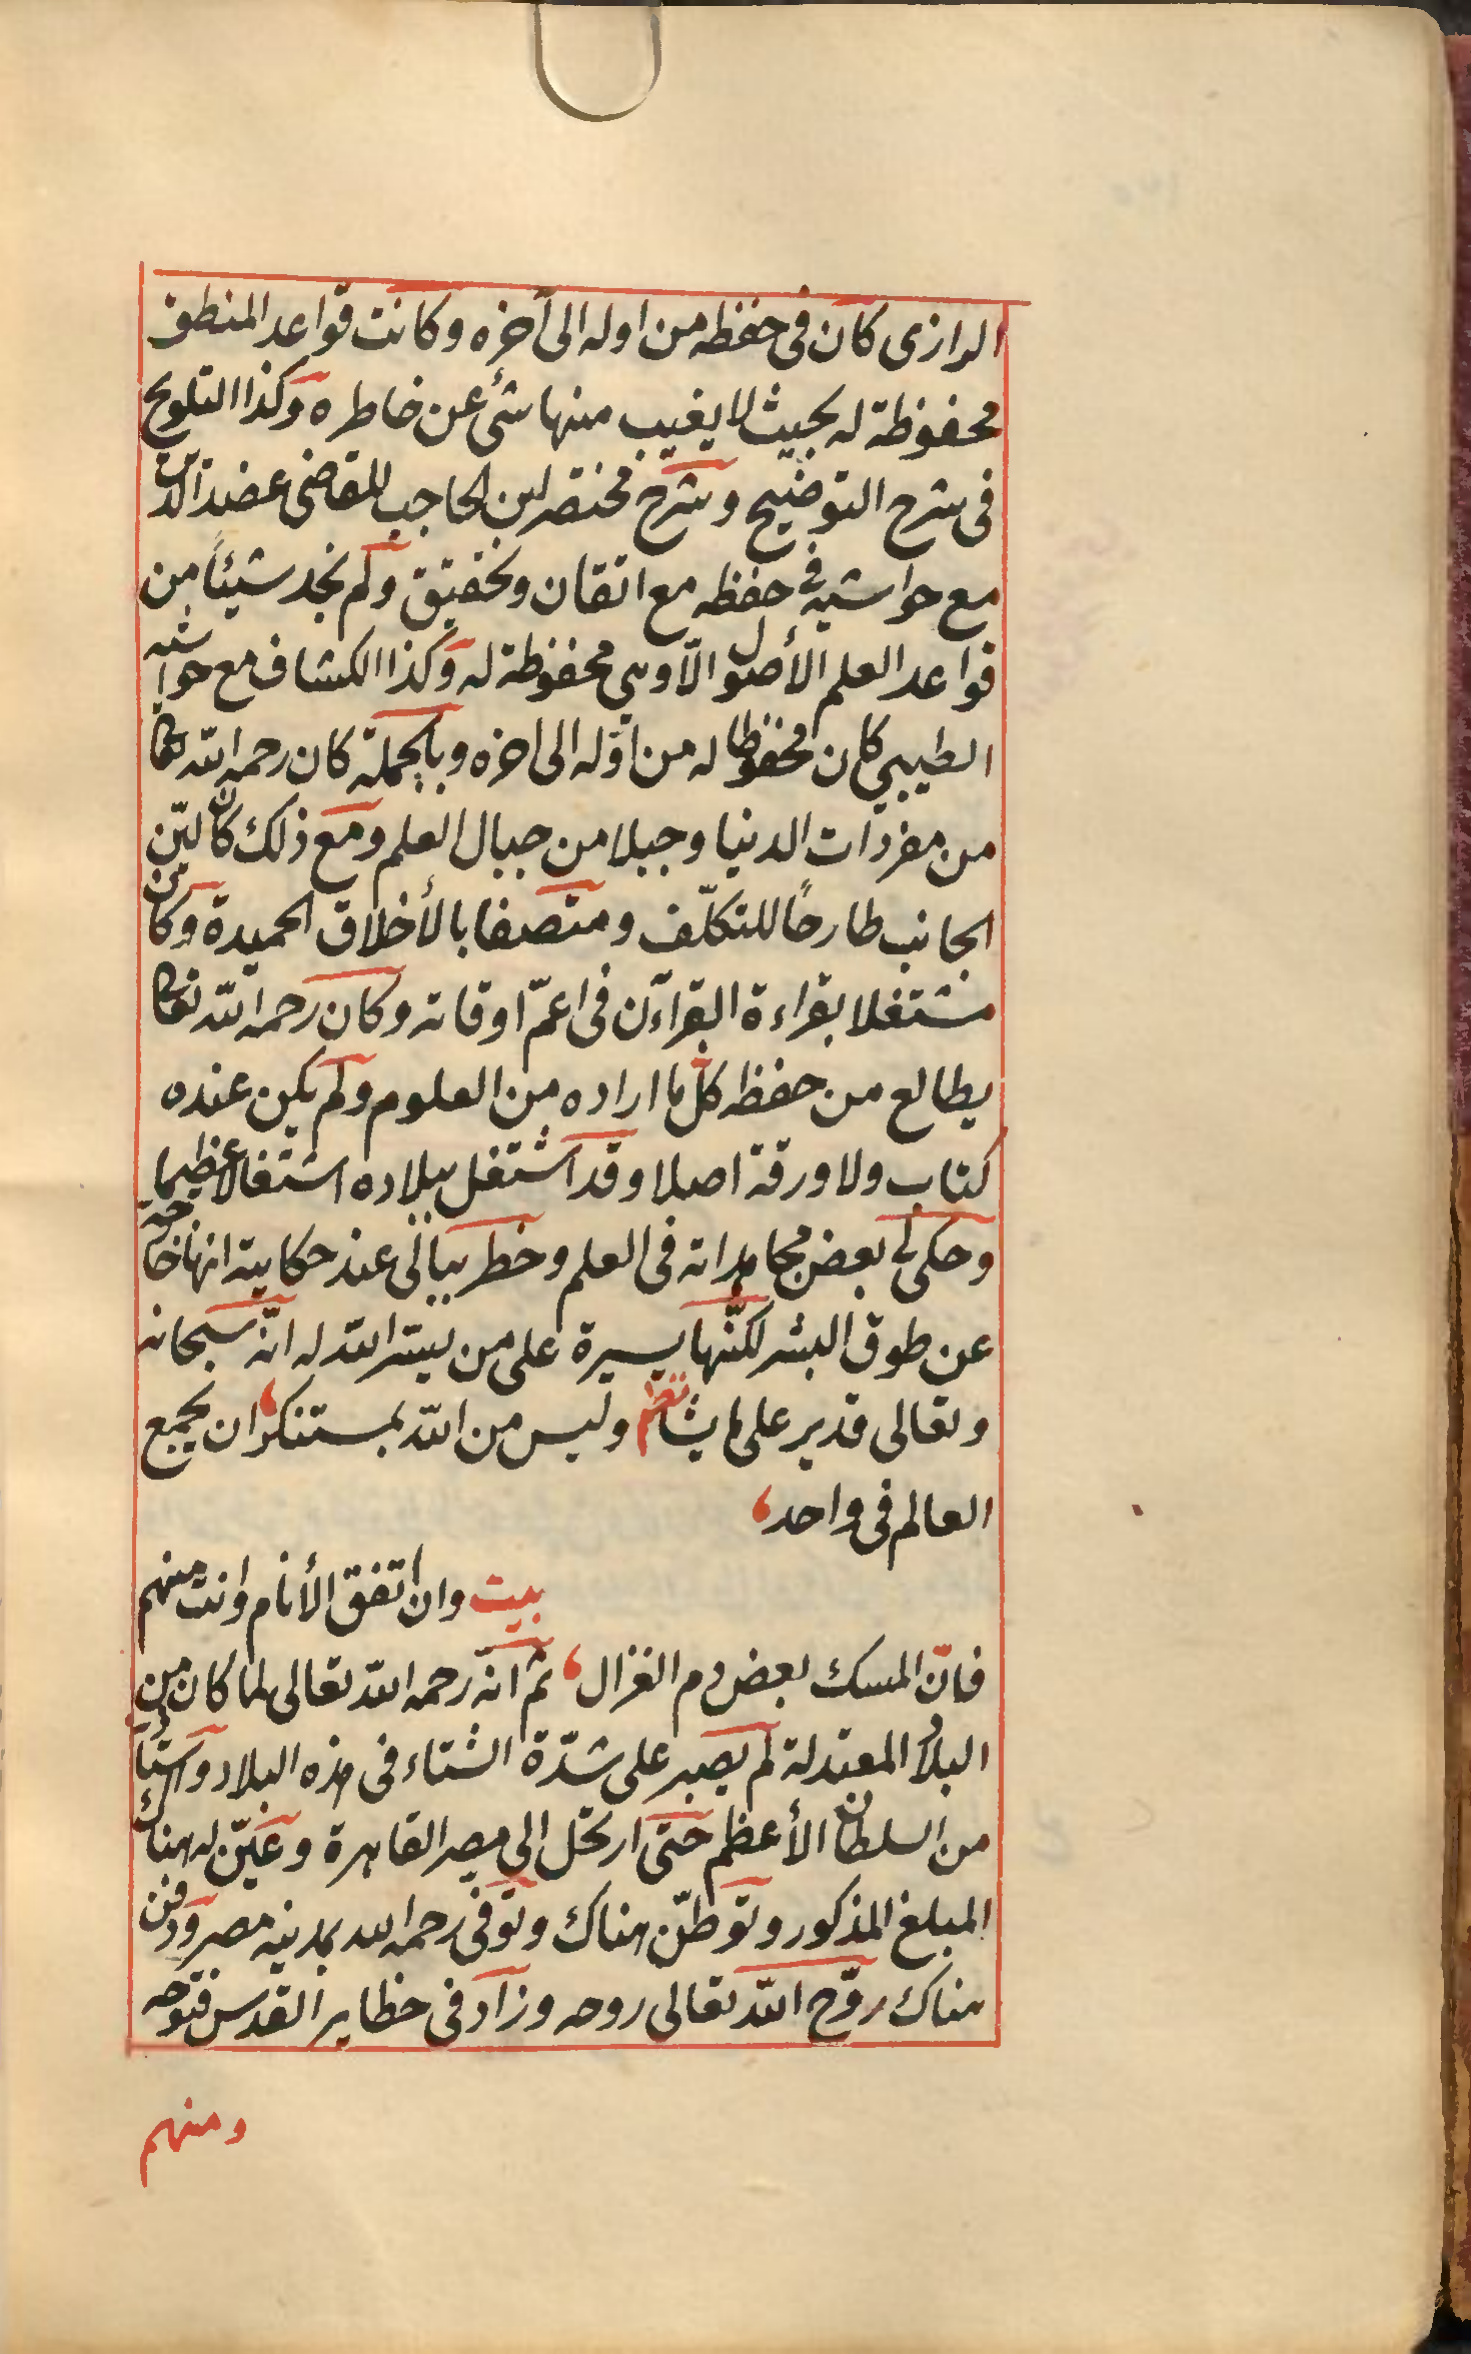 الرازى كان فى حفظه من اوله الى آخره وكانت قواعد المنطق
محفوظة له بحيث لا يغيب منها شئ عن خاطره وكذا التلويح
فى شرح التوضيح وشرح مختصر ابن الحاجب للقاضى عضد الدين
مع حواشيه فى حفظه مع اتقان وتحقيق ولم نجد شيئاً من
قواعد العلم الأصول الّا وهى محفوظة له وكذا الكشاف مع حواشيه
الطيبى كان محفوظا له من اوّله الى اخره وبالجملة كان رحمه الله تعالى
من مفردات الدنيا وجبلا من جبال العلم ومع ذلك كان ليّن
الجانب طارحاً للتكلّف ومتصفا بالأخلاق الحميدة وكان
مشتغلا بقراءة القرآن فى اعمّ اوقاته وكان رحمه الله تعالى
يطالع من حفظه كلّ ما اراده من العلوم ولم يكن عنده
كتاب ولا ورقة اصلا وقد اشتغل ببلاده اشتغالا عظيما
وحكى لى بعض مجاهداته فى العلم وخطر ببالى عند حكايته انها خارجة
عن طوق البشر لكنّها يسيرة على من يسّر الله له انّه سبحانه
وتعالى قدير على ما يشاء نظم وليس من الله بمستنكر، ان يجمع
العالم فى واحد،
بيت وان اتفق الأنام وانت منهم
فانّ المسك بعض دم الغزال، ثم انّه رحمه الله تعالى لما كان من
البلاد المعتدلة لم يصبر على شدّة الشتاء فى هذه البلاد واستأذن
من السلطان الأعظم حتى ارتحل الى مصر القاهرة وعيّن له هناك
المبلغ المذكور وتوطّن هناك وتوفى رحمه الله بمدينه مصر ودفن
هناك روّح الله تعالى روحه وزاد فى حظاير القدس فتوحه
ومنهم